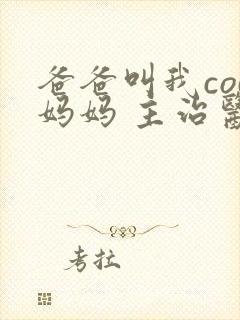 爸爸叫我co
妈妈 主治
考拉